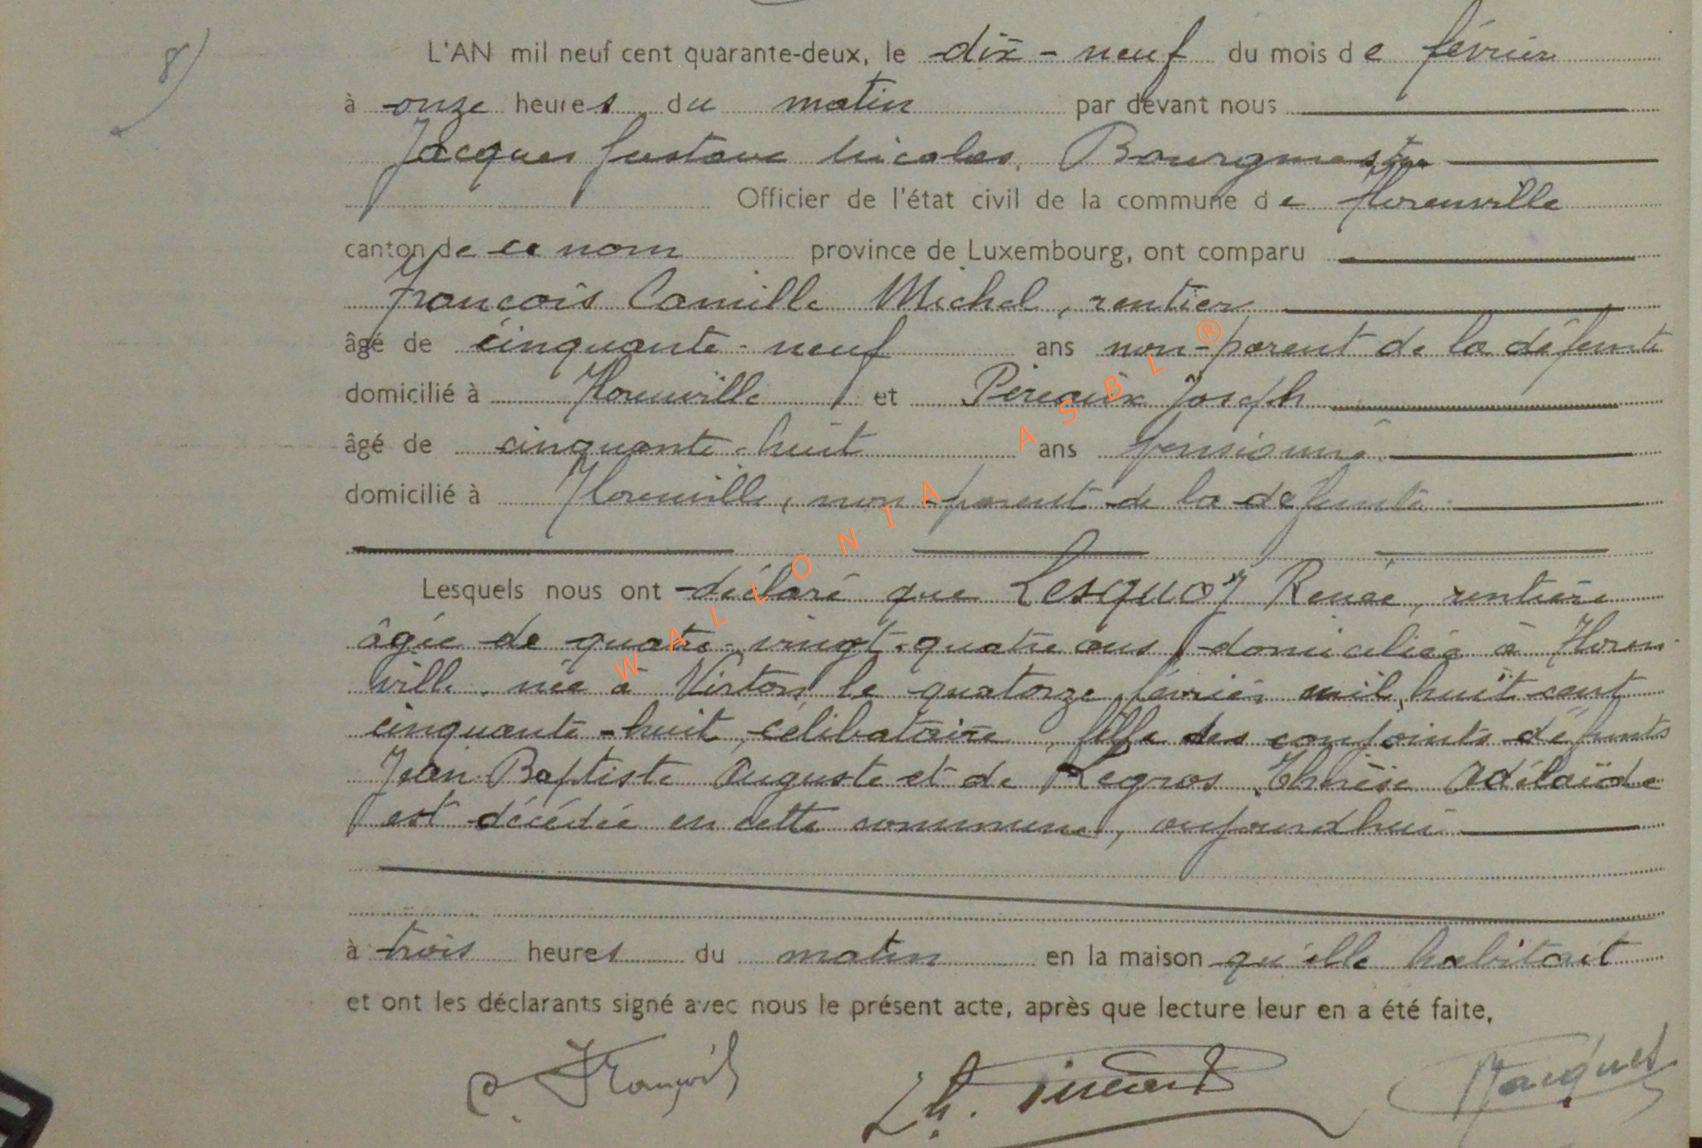 8)
L'AN mil neuf cent quarante-deux, le dix-neuf du mois de février
à onze heures du matin par devant nous
Jacques Gustave Nicolas, Bourgmestre
Officier de l'état civil de la commune de Florenville
canton de ce nom province de Luxembourg, ont comparu
François Camille Michel, rentier
âgé de cinquante-neuf ans non-parent de la défunte
domicilié à Florenville et Joseph
âgé de cinquante-huit ans pensionné
domicilié à Florenville, non-parent de la défunte
Lesquels nous ont déclaré que Lesquoy Renée, rentière
âgée de quatre-vingt-quatre ans, domiciliée à Floren-
ville, née à Virton, le quatorze février mil huit cent
cinquante-huit, célibataire, fille des conjoints défunts
Jean Baptiste Auguste et de Legros Thérèse Adélaïde
est décédée en cette commune, aujourd'hui
à trois heures du matin en la maison qu'elle habitait
et ont les déclarants signé avec nous le présent acte, après que lecture leur en a été faite,
C. François Jacques
WALLONIA ASBL ®